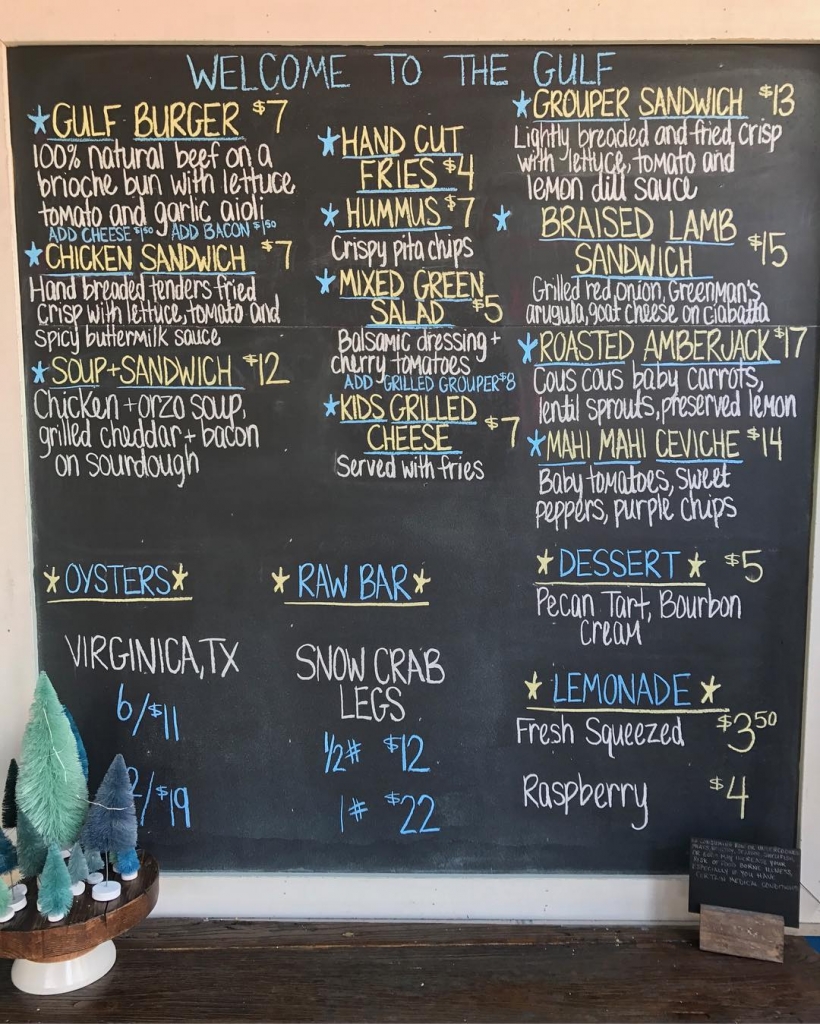 WELCOME TO THE GULF
GULF BURGER $7
100% natural beef on a
brioche bun with lettuce,
tomato and garlic aioli
ADD CHEESE $1.50 ADD BACON $1.50
CHICKEN SANDWICH $7
Hand breaded tenders fried
crisp with lettuce, tomato and
spicy buttermilk sauce
SOUP+SANDWICH $12
Chicken + orzo soup,
grilled cheddar + bacon
on sourdough
HAND CUT
FRIES $4
HUMMUS $7
Crispy pita chips
MIXED GREEN
SALAD $5
Balsamic dressing +
cherry tomatoes
ADD GRILLED GROUPER $8
KIDS GRILLED
CHEESE $7
Served with fries
GROUPER SANDWICH $13
Lightly breaded and fried crisp
with lettuce, tomato and
lemon dill sauce
BRAISED LAMB
SANDWICH $15
Grilled red onion, Greenman's
arugula, goat cheese on ciabatta
ROASTED AMBERJACK $17
Cous cous baby carrots,
lentil sprouts, preserved lemon
MAHI MAHI CEVICHE $14
Baby tomatoes, sweet
peppers, purple chips
OYSTERS
VIRGINICA, TX
6/$11
2/$19
RAW BAR
SNOW CRAB
LEGS
1/2# $12
1# $22
DESSERT $5
Pecan Tart, Bourbon
Cream
LEMONADE
Fresh Squeezed $3.50
Raspberry $4
CONSUMING RAW OR UNDERCOOKED
OR EGGS MAY INCREASE YOUR
RISK OF FOOD BORNE ILLNESS,
ESPECIALLY IF YOU HAVE
CERTAIN MEDICAL CONDITIONS